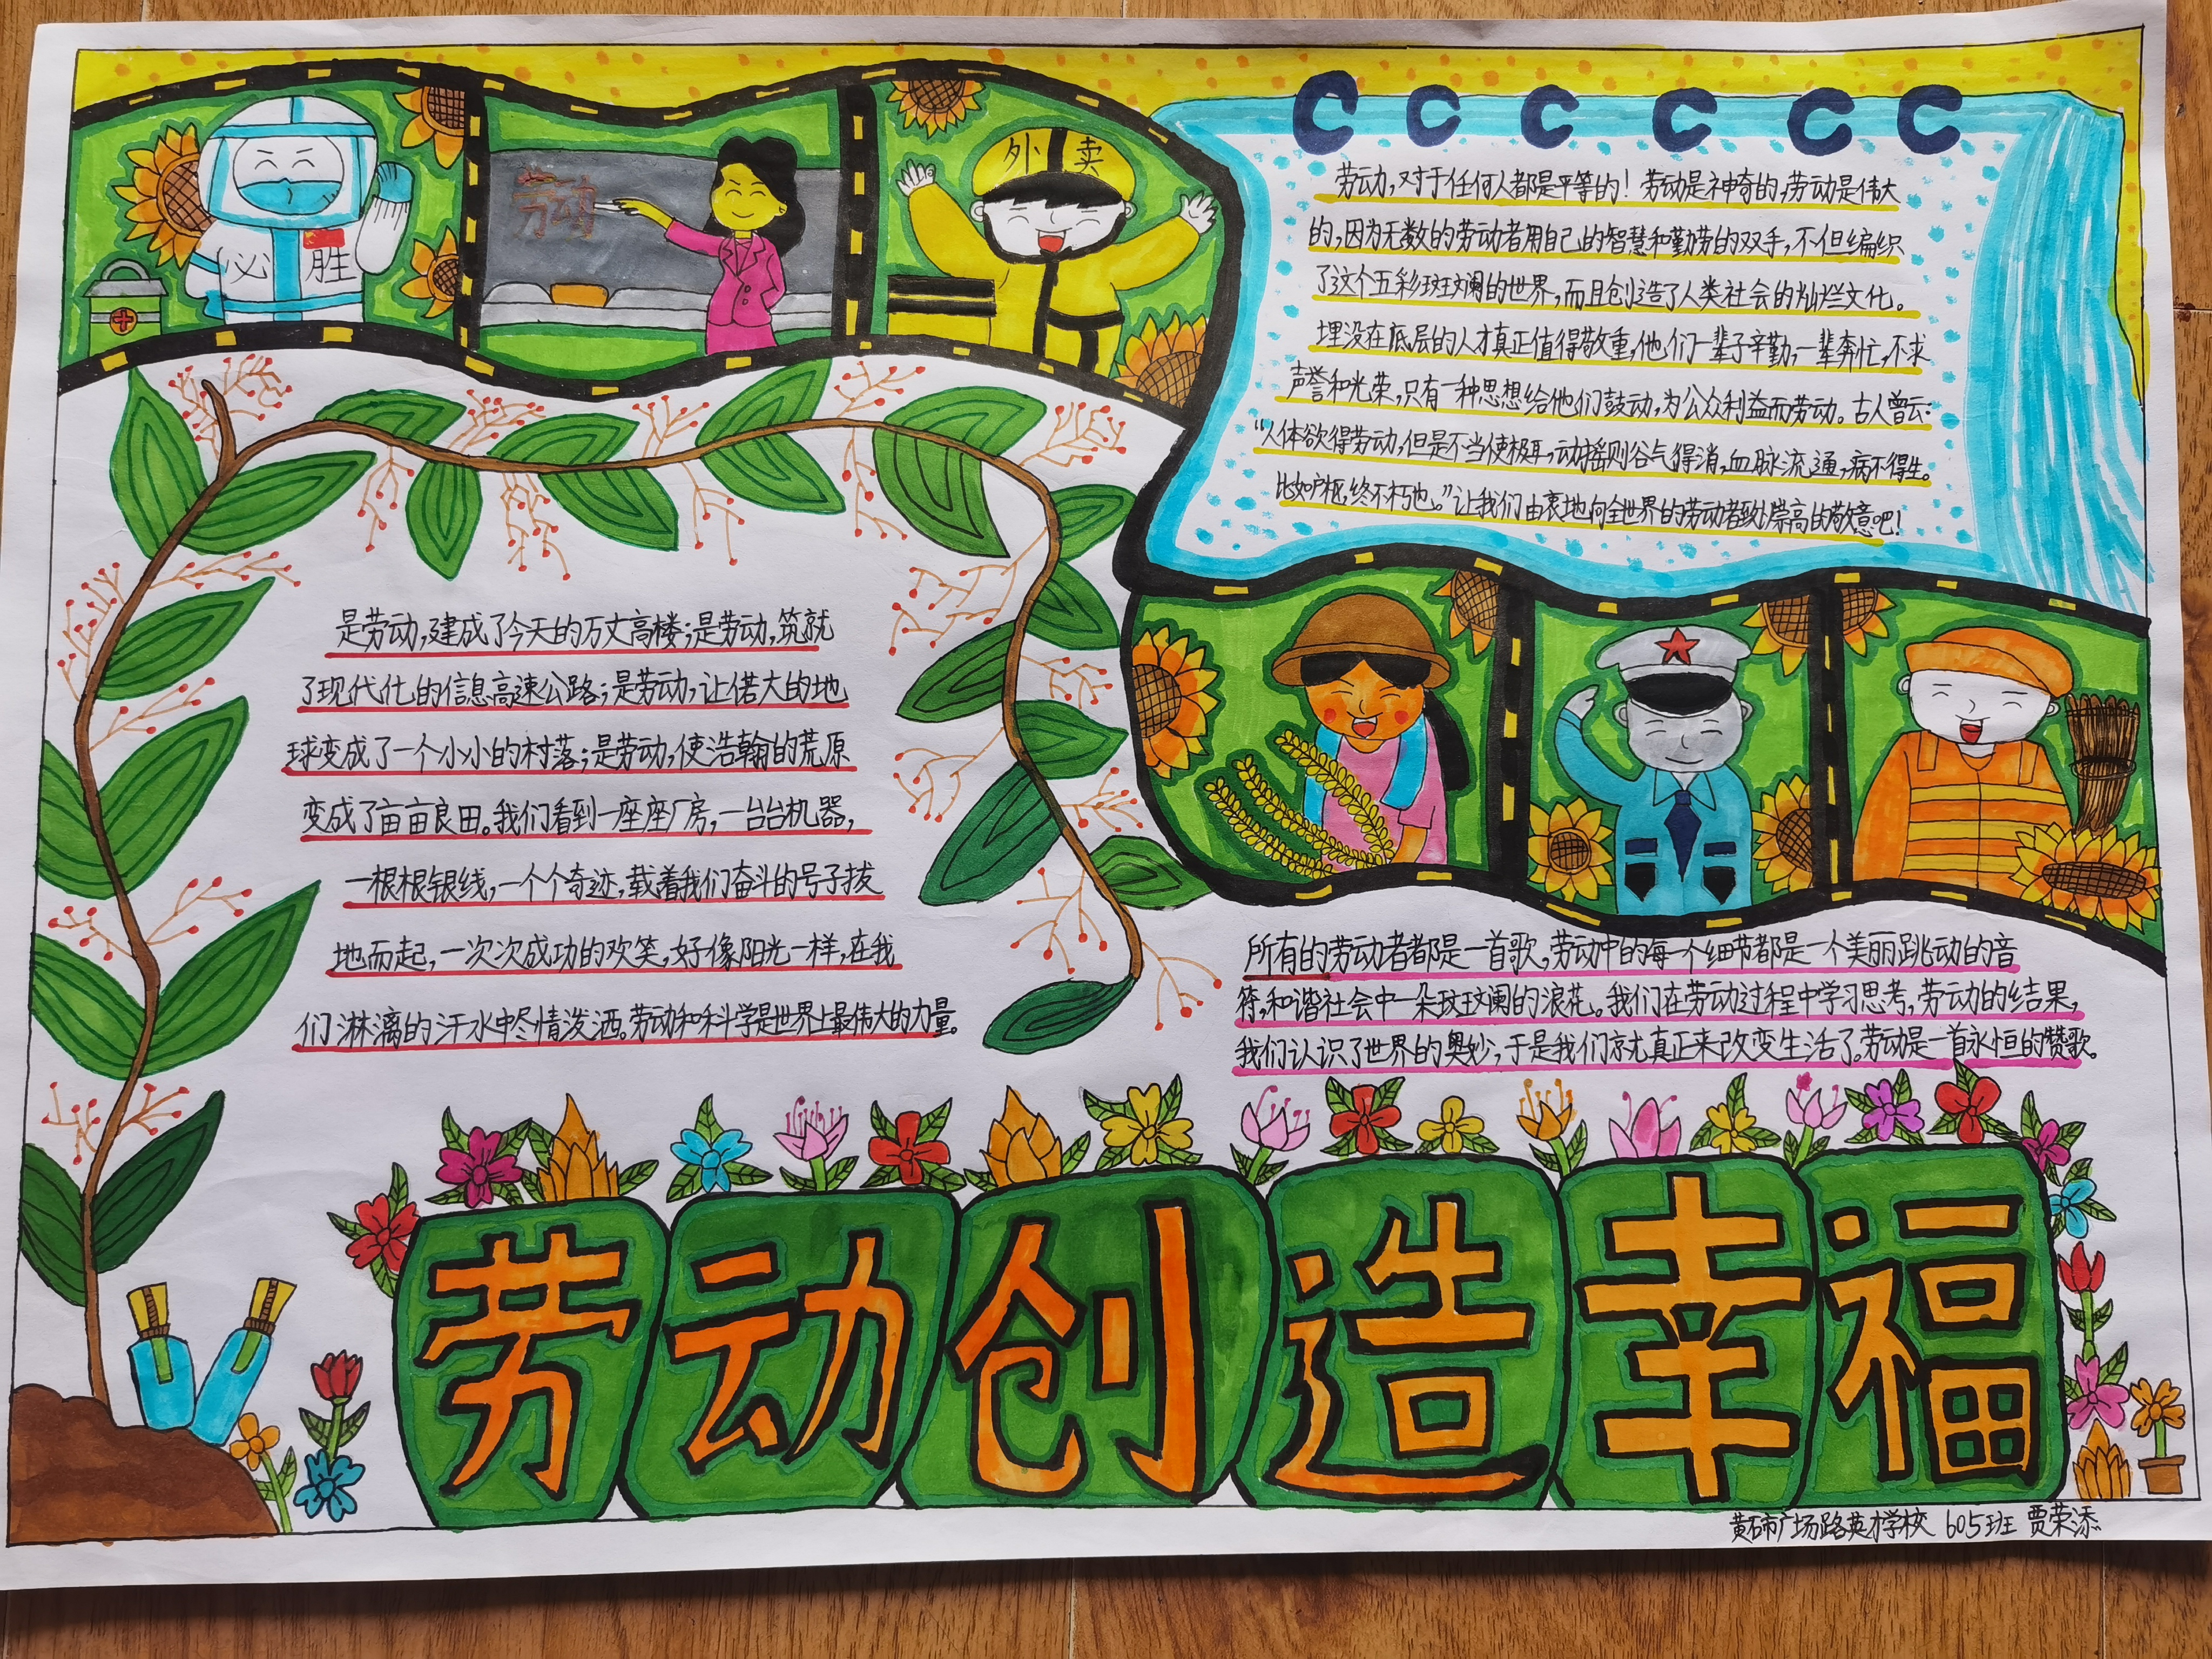 必胜
劳动
外卖
C C C C C C
劳动,对于任何人都是平等的！劳动是神奇的,劳动是伟大
的,因为无数的劳动者用自己的智慧和勤劳的双手,不但编织
了这个五彩斑斓的世界,而且创造了人类社会的灿烂文化。
埋没在底层的人才真正值得敬重,他们一辈子辛勤,一辈奔忙,不求
声誉和光荣,只有一种思想给他们鼓动,为公众利益而劳动。古人曾云:
“人体欲得劳动,但是不当使极耳,动摇则谷气得消,血脉流通,病不得生。
比如户枢,终不朽也。”让我们由衷地向全世界的劳动者致以崇高的敬意吧！
是劳动,建成了今天的万丈高楼;是劳动,筑就
了现代化的信息高速公路;是劳动,让偌大的地
球变成了一个小小的村落;是劳动,使浩翰的荒原
变成了亩亩良田。我们看到一座座厂房,一台台机器,
一根根银线,一个个奇迹,载着我们奋斗的号子拔
地而起,一次次成功的欢笑,好像阳光一样,在我
们淋漓的汗水中尽情泼洒。劳动和科学是世界上最伟大的力量。
所有的劳动者都是一首歌,劳动中的每一个细节都是一个美丽跳动的音
符,和谐社会中一朵斑斓的浪花。我们在劳动过程中学习思考,劳动的结果,
我们认识了世界的奥妙,于是我们就真正来改变生活了。劳动是一首永恒的赞歌。
劳动创造幸福
黄石市广场路英才学校 605班 贾荣添